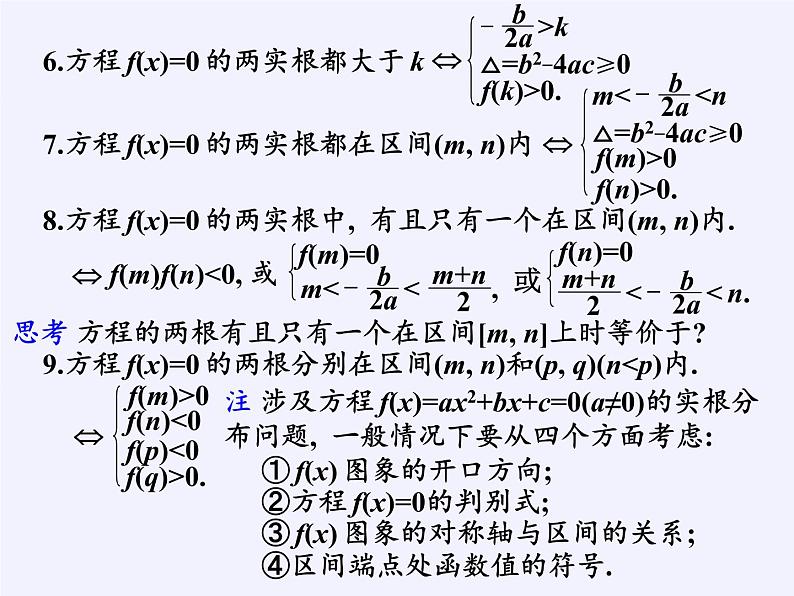 6.方程 f(x)=0 的两实根都大于 k ⇔ { -b/2a>k
△=b²-4ac≥0
f(k)>0.
7.方程 f(x)=0 的两实根都在区间(m, n)内 ⇔ { m<-b/2a<n
△=b²-4ac≥0
f(m)>0
f(n)>0.
8.方程 f(x)=0 的两实根中, 有且只有一个在区间(m, n)内.
⇔ f(m)f(n)<0, 或 { f(m)=0
m<-b/2a<m+n/2, 或 { f(n)=0
m+n/2<-b/2a<n.
思考 方程的两根有且只有一个在区间[m, n]上时等价于?
9.方程 f(x)=0 的两根分别在区间(m, n)和(p, q)(n<p)内.
⇔ { f(m)>0
f(n)<0
f(p)<0
f(q)>0.
注 涉及方程 f(x)=ax²+bx+c=0(a≠0)的实根分
布问题, 一般情况下要从四个方面考虑:
①f(x) 图象的开口方向;
②方程 f(x)=0的判别式;
③f(x) 图象的对称轴与区间的关系;
④区间端点处函数值的符号.